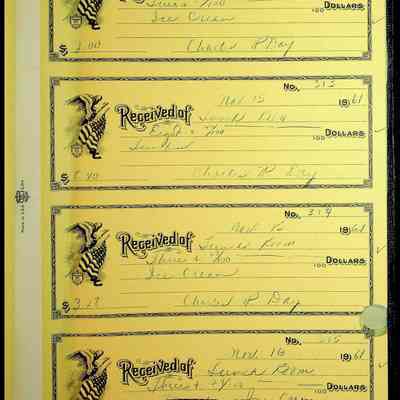 100 DOLLARS
Ice Cream
$ 3.00 Charles P Day
No. 313
Nov 12 1961
Received of Lunch Room
Eight & /100 DOLLARS
$ 8.40 Charles P Day
No. 314
Nov 12 1961
Received of Lunch Room
Three & /100 DOLLARS
Ice Cream
$ 3. Charles P Day
No. 315
Nov. 16 1961
Received of Lunch Room
Three & /100 DOLLARS
Ice Cream
MADE IN U.S.A.